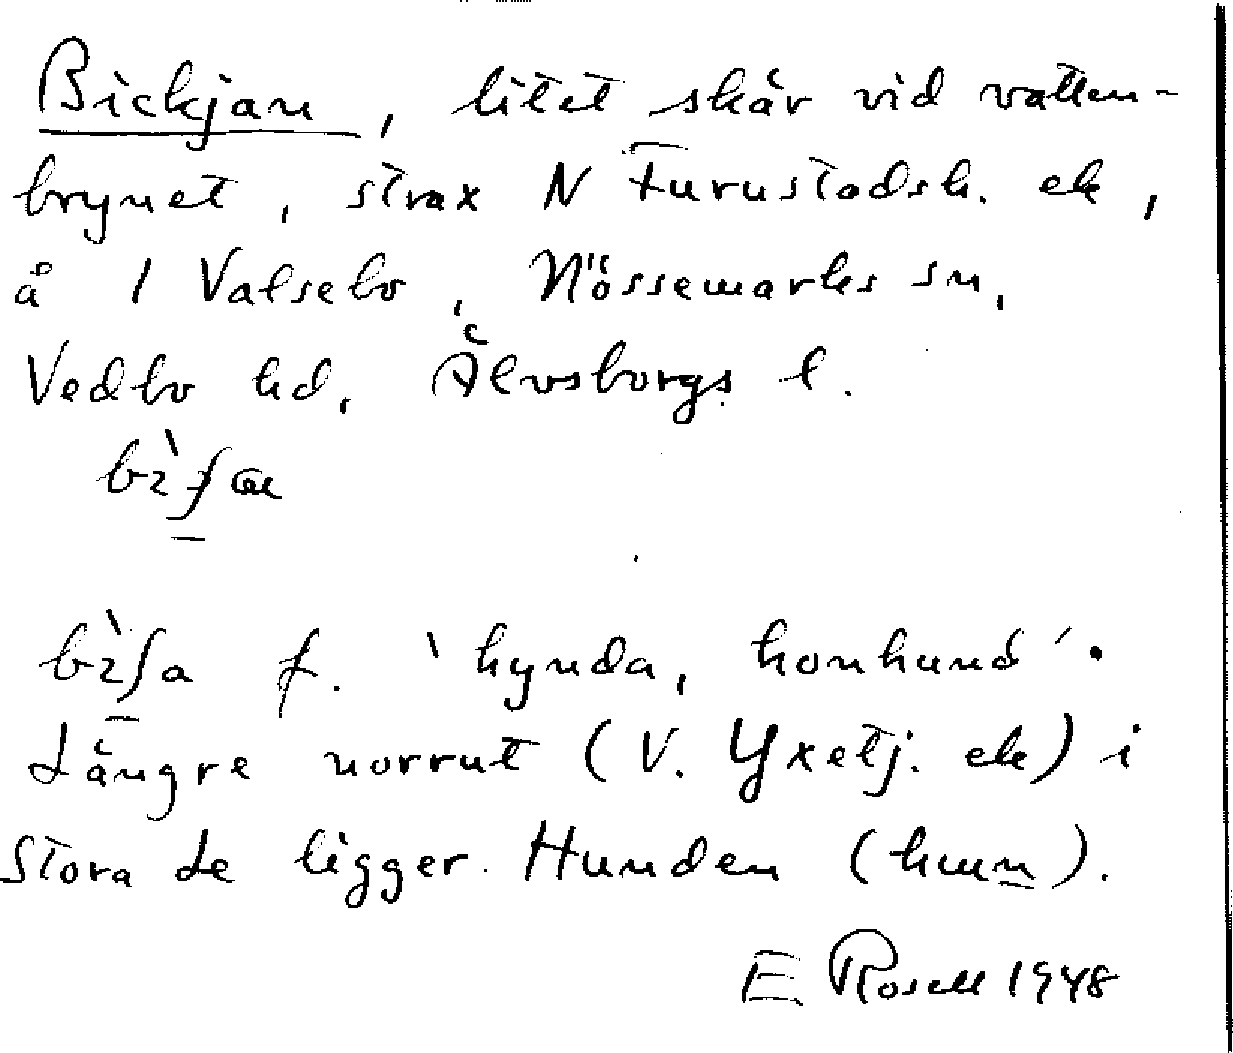 Bickjan, litet skär vid vatten-
brynet, strax N Furustadsh. ek,
å 1 Valsebo, Nössemarks sn,
Vedbo hd, Älvsborgs l.
bı̀ʃæ
bı̀ʃa f. 'hynda, honhund'.
Längre norrut (V. Yxetj. ek) i
Stora Le ligger Hunden (hun).
E Rosell 1948